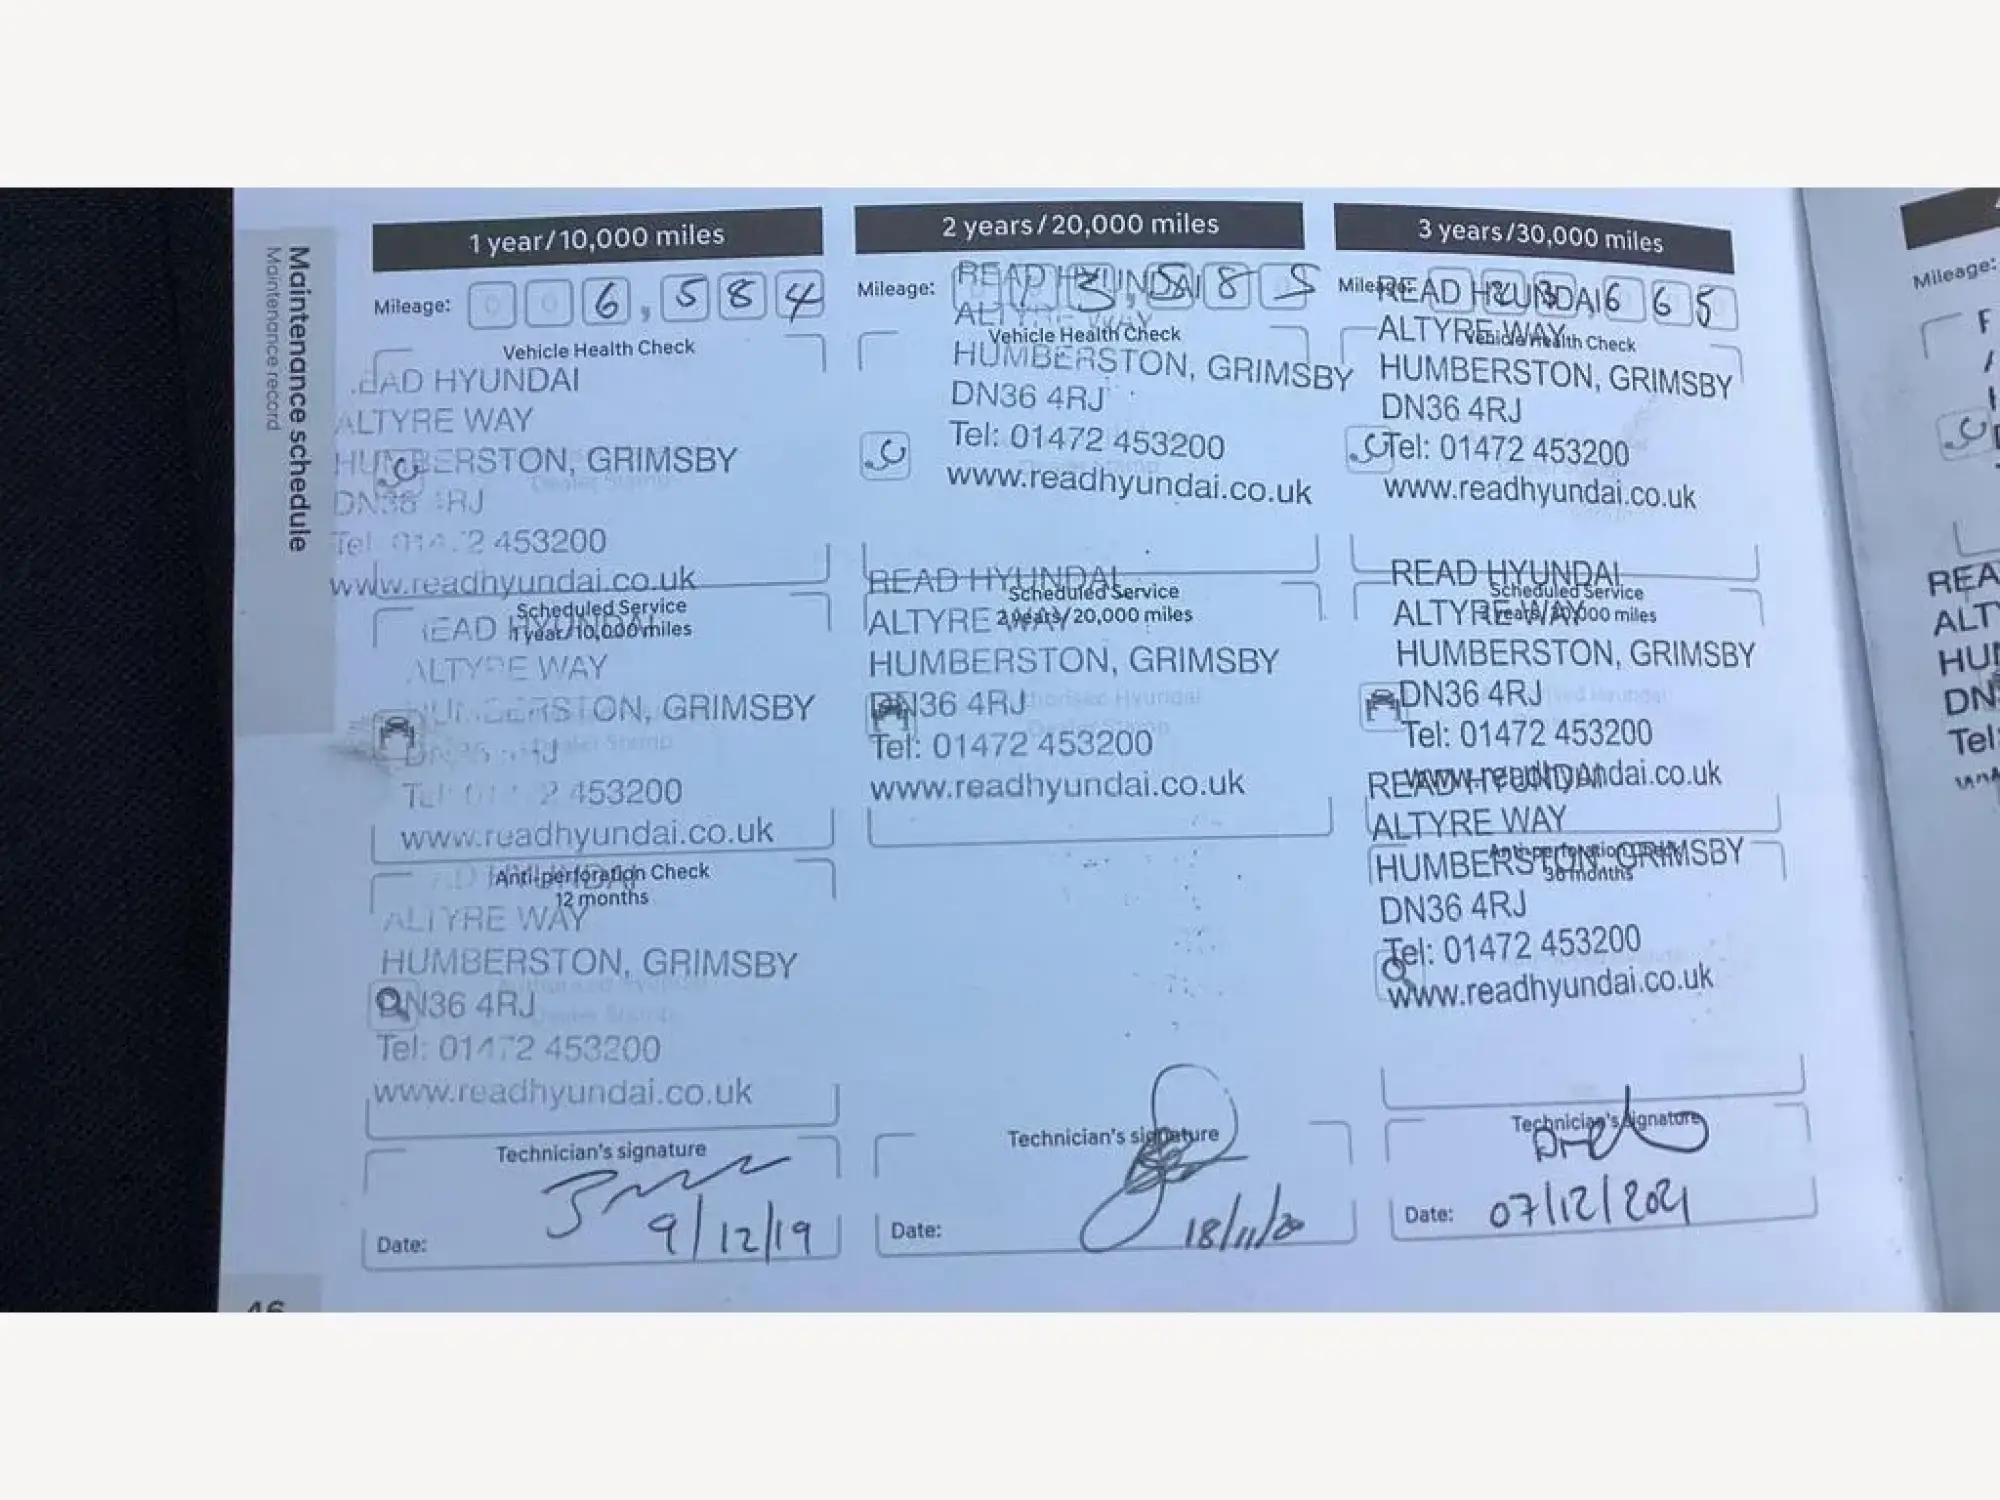 Maintenance schedule
Maintenance record
1 year/10,000 miles
Mileage: 0 0 6,584
Vehicle Health Check
EAD HYUNDAI
ALTYRE WAY
HUMBERSTON, GRIMSBY
DN36 4RJ
Tel: 01472 453200
www.readhyundai.co.uk
Scheduled Service
1 year/10,000 miles
READ HYUNDAI
ALTYRE WAY
HUMBERSTON, GRIMSBY
Dealer Stamp
DN36 4RJ
Tel: 01472 453200
www.readhyundai.co.uk
Anti-perforation Check
12 months
ALTYRE WAY
HUMBERSTON, GRIMSBY
Authorised Hyundai
DN36 4RJ
Dealer Stamp
Tel: 01472 453200
www.readhyundai.co.uk
Technician's signature
Date: 9/12/19
2 years/20,000 miles
Mileage:
READ HYUNDAI
ALTYRE WAY
Vehicle Health Check
HUMBERSTON, GRIMSBY
DN36 4RJ
Tel: 01472 453200
www.readhyundai.co.uk
READ HYUNDAI
Scheduled Service
ALTYRE WAY
2 years/20,000 miles
HUMBERSTON, GRIMSBY
DN36 4RJ
Authorised Hyundai
Dealer Stamp
Tel: 01472 453200
www.readhyundai.co.uk
Technician's signature
Date: 18/11/20
3 years/30,000 miles
Mileage: 665
READ HYUNDAI
ALTYRE WAY
Vehicle Health Check
HUMBERSTON, GRIMSBY
DN36 4RJ
Tel: 01472 453200
www.readhyundai.co.uk
READ HYUNDAI
Scheduled Service
ALTYRE WAY
HUMBERSTON, GRIMSBY
DN36 4RJ
Tel: 01472 453200
www.readhyundai.co.uk
READ HYUNDAI
ALTYRE WAY
Anti-perforation Check
HUMBERSTON, GRIMSBY
36 months
DN36 4RJ
Tel: 01472 453200
www.readhyundai.co.uk
Technician's signature
Date: 07/12/2021
Mileage:
REA
ALT
HU
DN
Tel